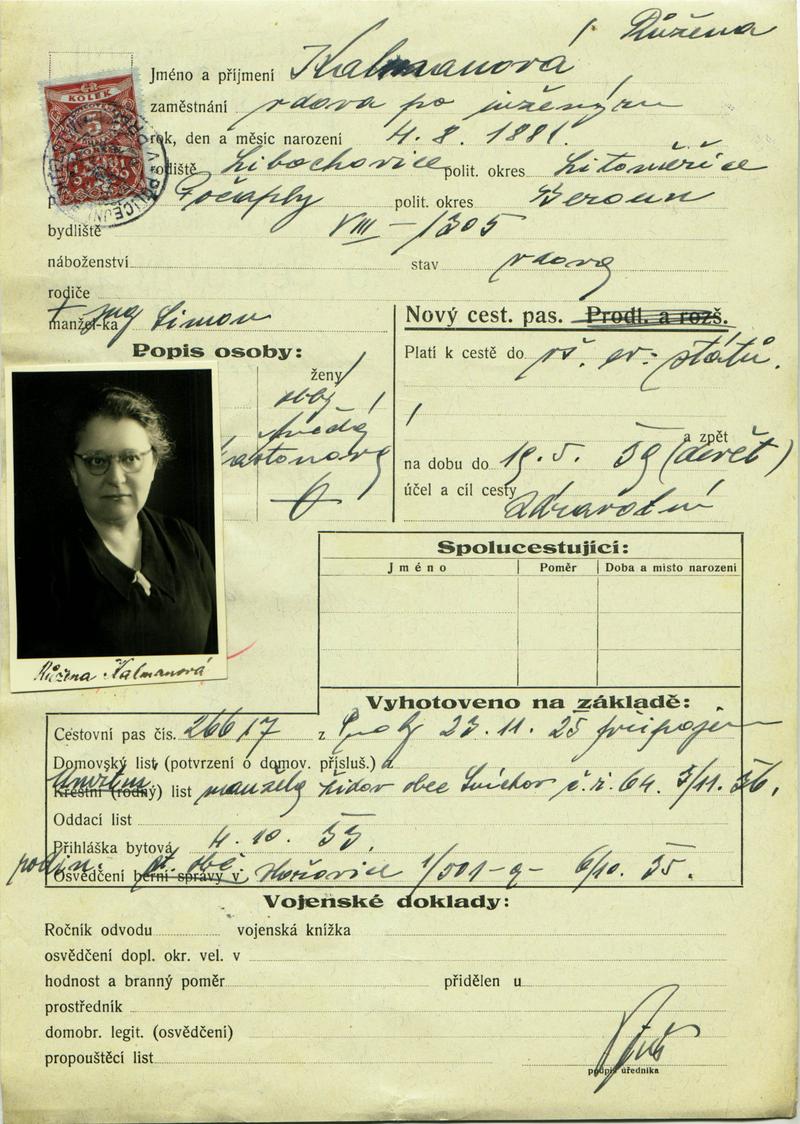 Růžena
Jméno a příjmení Kalmanová
zaměstnání vdova po inženýru
rok, den a měsíc narození 4. 8. 1881.
rodiště Libochovice polit. okres Litoměřice
Počaply polit. okres Beroun
bydliště VIII – 1305
náboženství stav vdova
rodiče
manžel-ka + Ing Simon
Nový cest. pas. Prodl. a rozš.
Popis osoby:
Platí k cestě do vš. ev. států.
ženy
a zpět
na dobu do 19. 5. 39 (devět)
účel a cíl cesty zdravotní
KOLEK
5
Růžena Kalmanová
Spolucestující:
Jméno Poměr Doba a místo narození
Vyhotoveno na základě:
Cestovní pas čís. 26617 z 23. 11. 25 připojen
Domovský list (potvrzení o domov. přísluš.) z
Úmrtní
Křestní (rodný) list manžela židov. obec Smíchov č. ř. 64. 3/11. 36.
Oddací list
Přihláška bytová 4. 10. 33.
Osvědčení berní správy v Hořovice 1/501-9- 6/10. 35.
Vojenské doklady:
Ročník odvodu vojenská knížka
osvědčení dopl. okr. vel. v
hodnost a branný poměr přidělen u
prostředník
domobr. legit. (osvědčení)
propouštěcí list
podpis úředníka